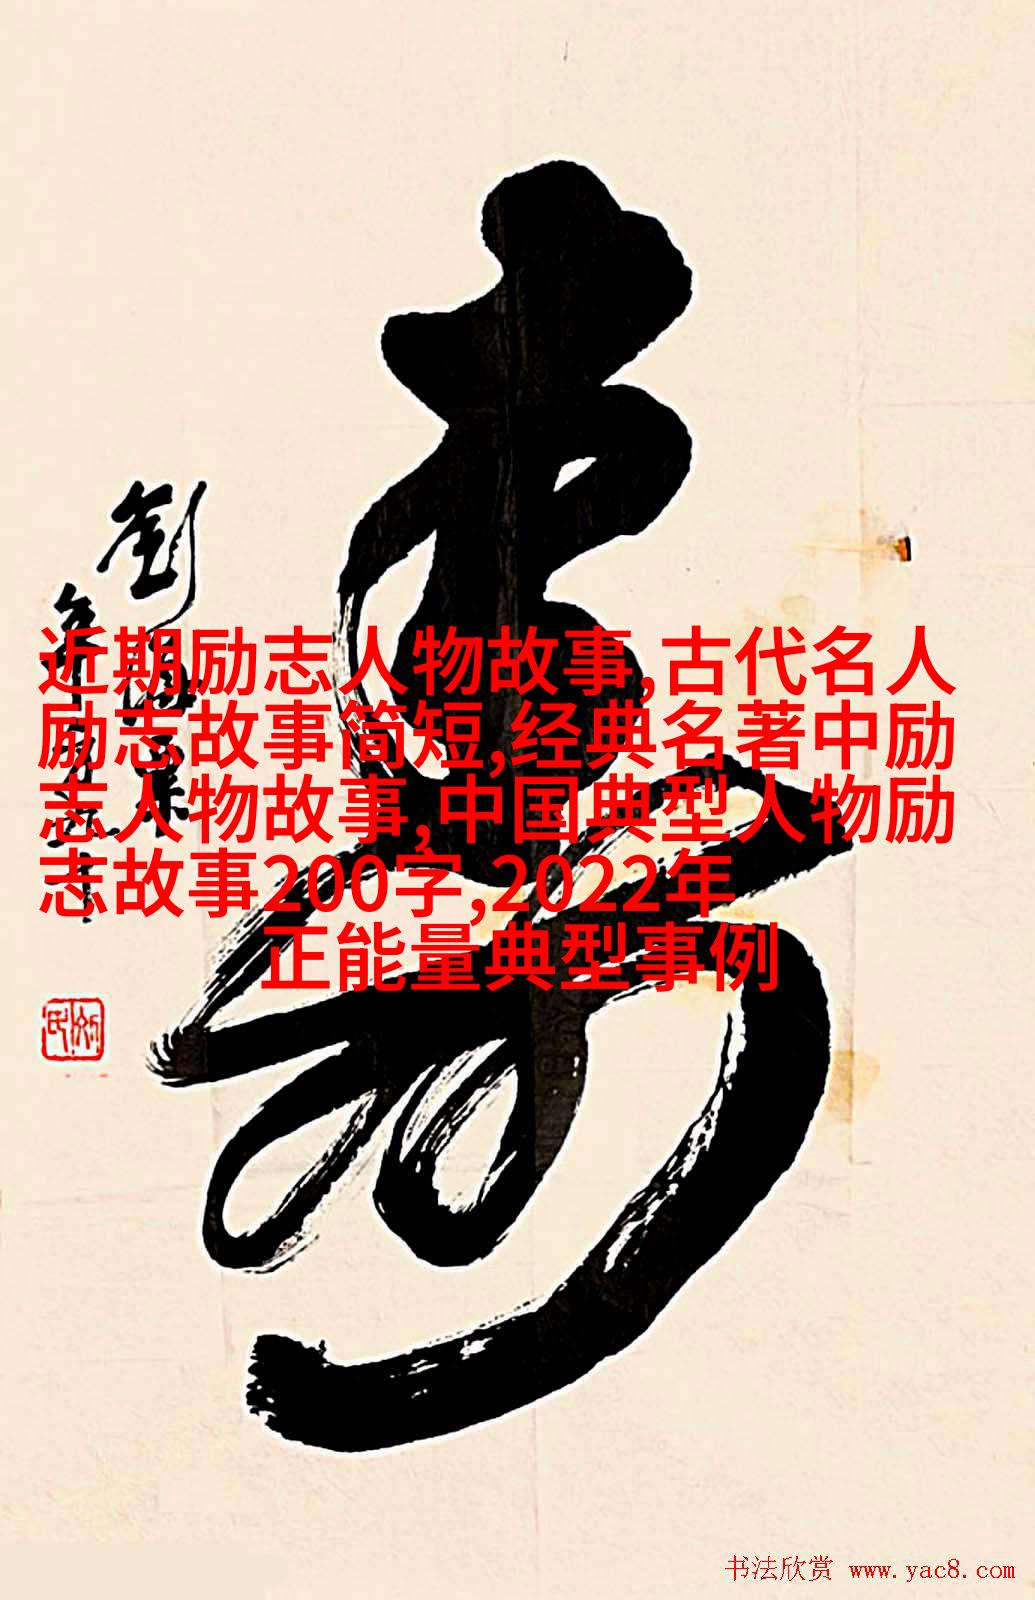 壽
劉海粟
近期励志人物故事,古代名人
励志故事简短,经典名著中励
志人物故事,中国典型人物励
志故事200字,2022年
正能量典型事例
书法欣赏 www.yac8.com